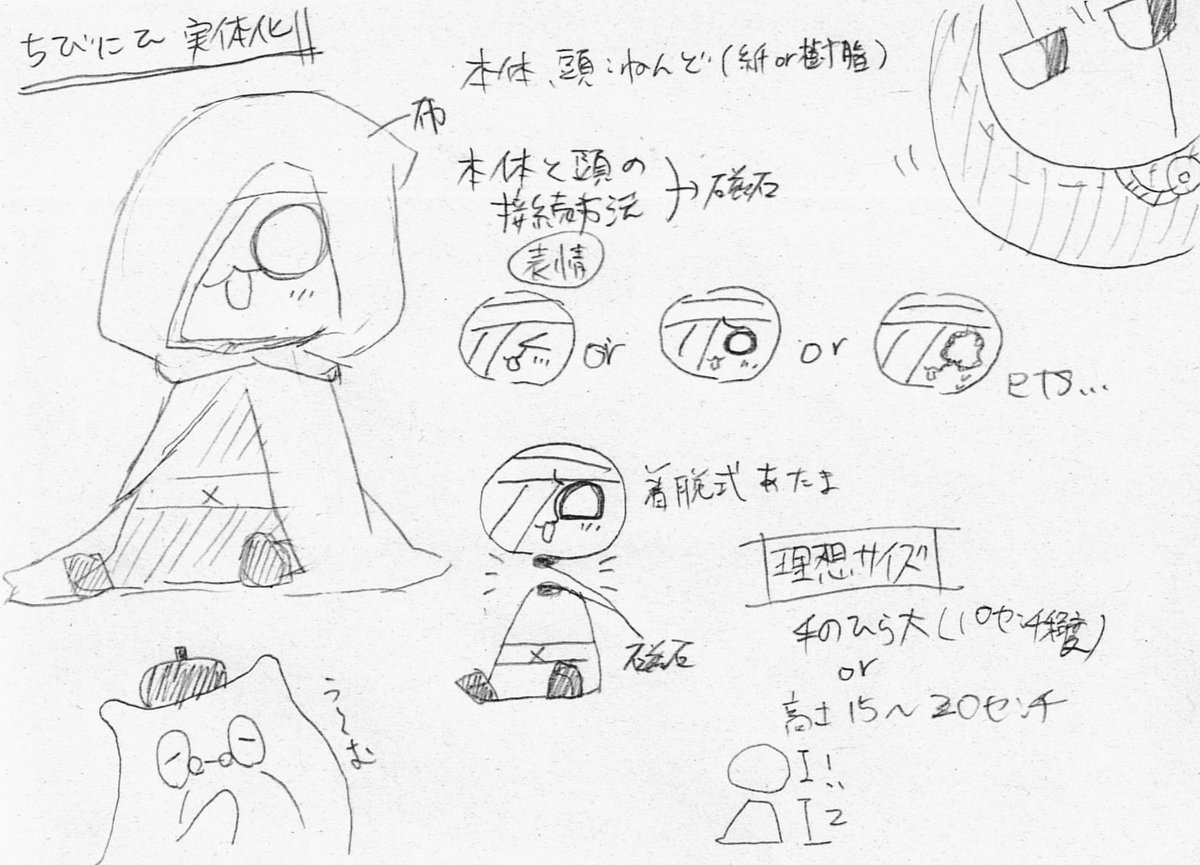 ちびにひ 実体化!!
本体、頭:ねんど(紙or樹脂)
布
本体と頭の
接続方法
→磁石
表情
or
or
ets...
着脱式あたま
磁石
理想サイズ
手のひら大(10センチ程度)
or
高さ15〜20センチ
うーむ
1
2